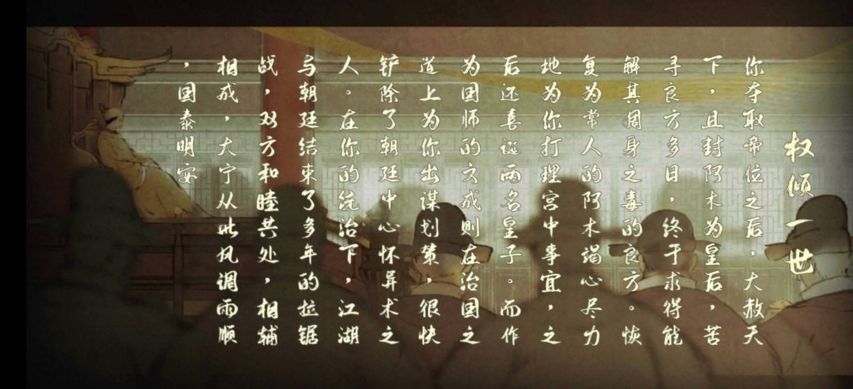 权倾一世
你夺取帝位之后,大赦天
下,且封阿木为皇后,苦
寻良方多日,终于求得能
解其周身之毒的良方。恢
复为常人的阿木竭心尽力
地为你打理宫中事宜,之
后还喜诞两名皇子。而作
为国师的亥成则在治国之
道上为你出谋划策,很快
铲除了朝廷中心怀异术之
人。在你的统治下,江湖
与朝廷结束了多年的拉锯
战,双方和睦共处,相辅
相成,大宁从此风调雨顺
,国泰明安